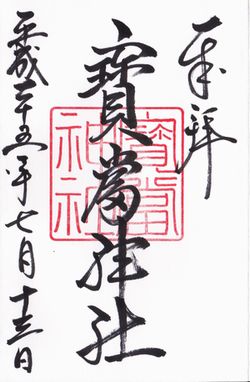 奉拝
寶當神社
寶當
神社
平成二十五年七月十三日